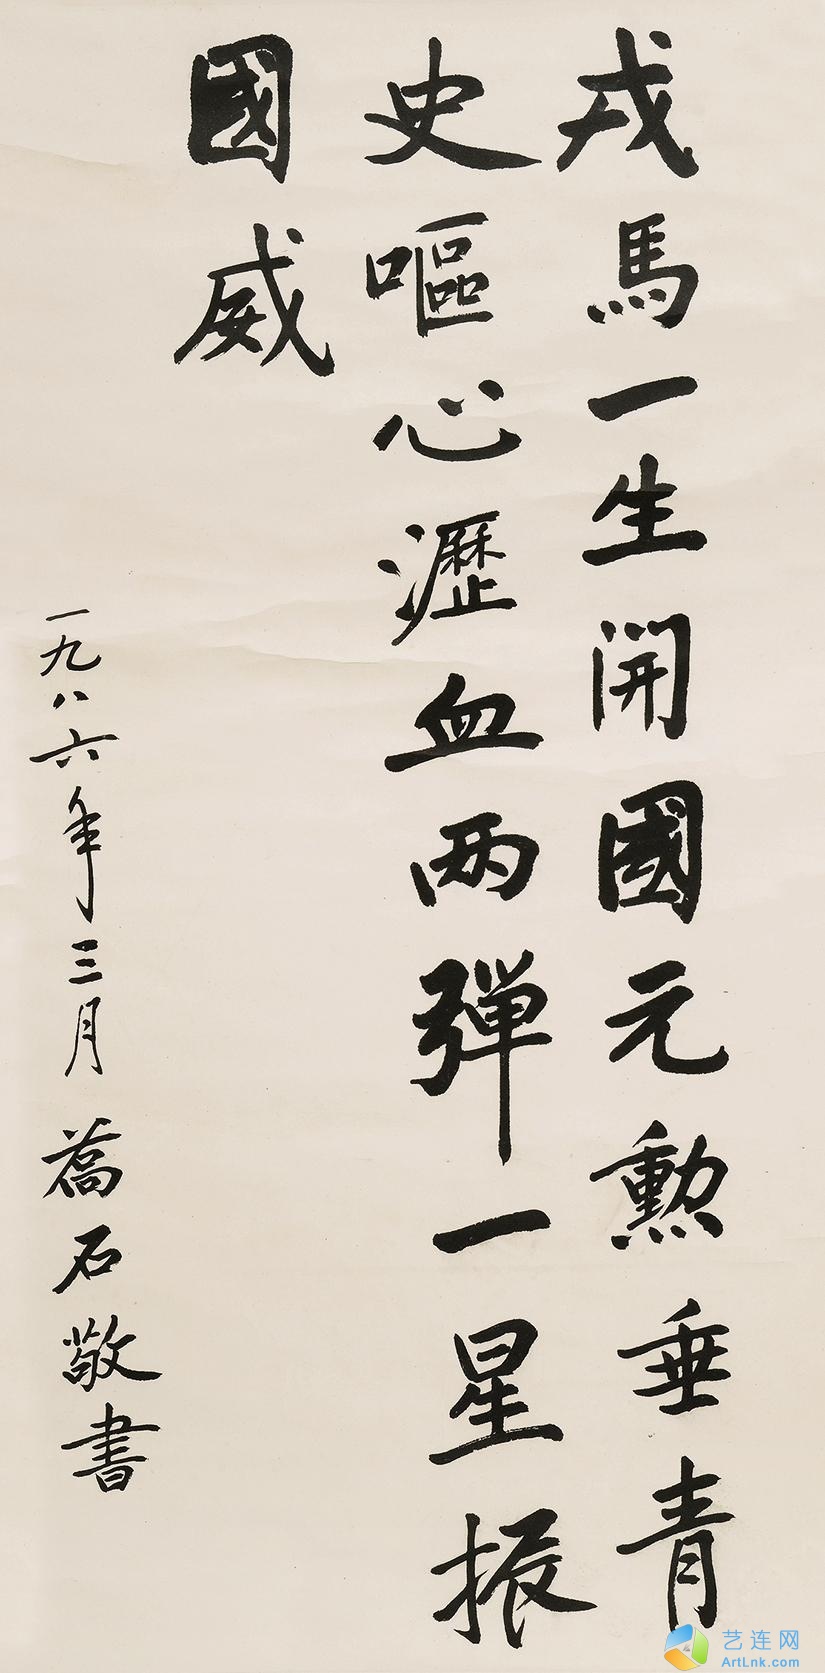 戎馬一生開國元勲垂青
史嘔心瀝血两彈一星振
國威
一九八六年三月喬石敬書
艺连网
ArtLnk.com